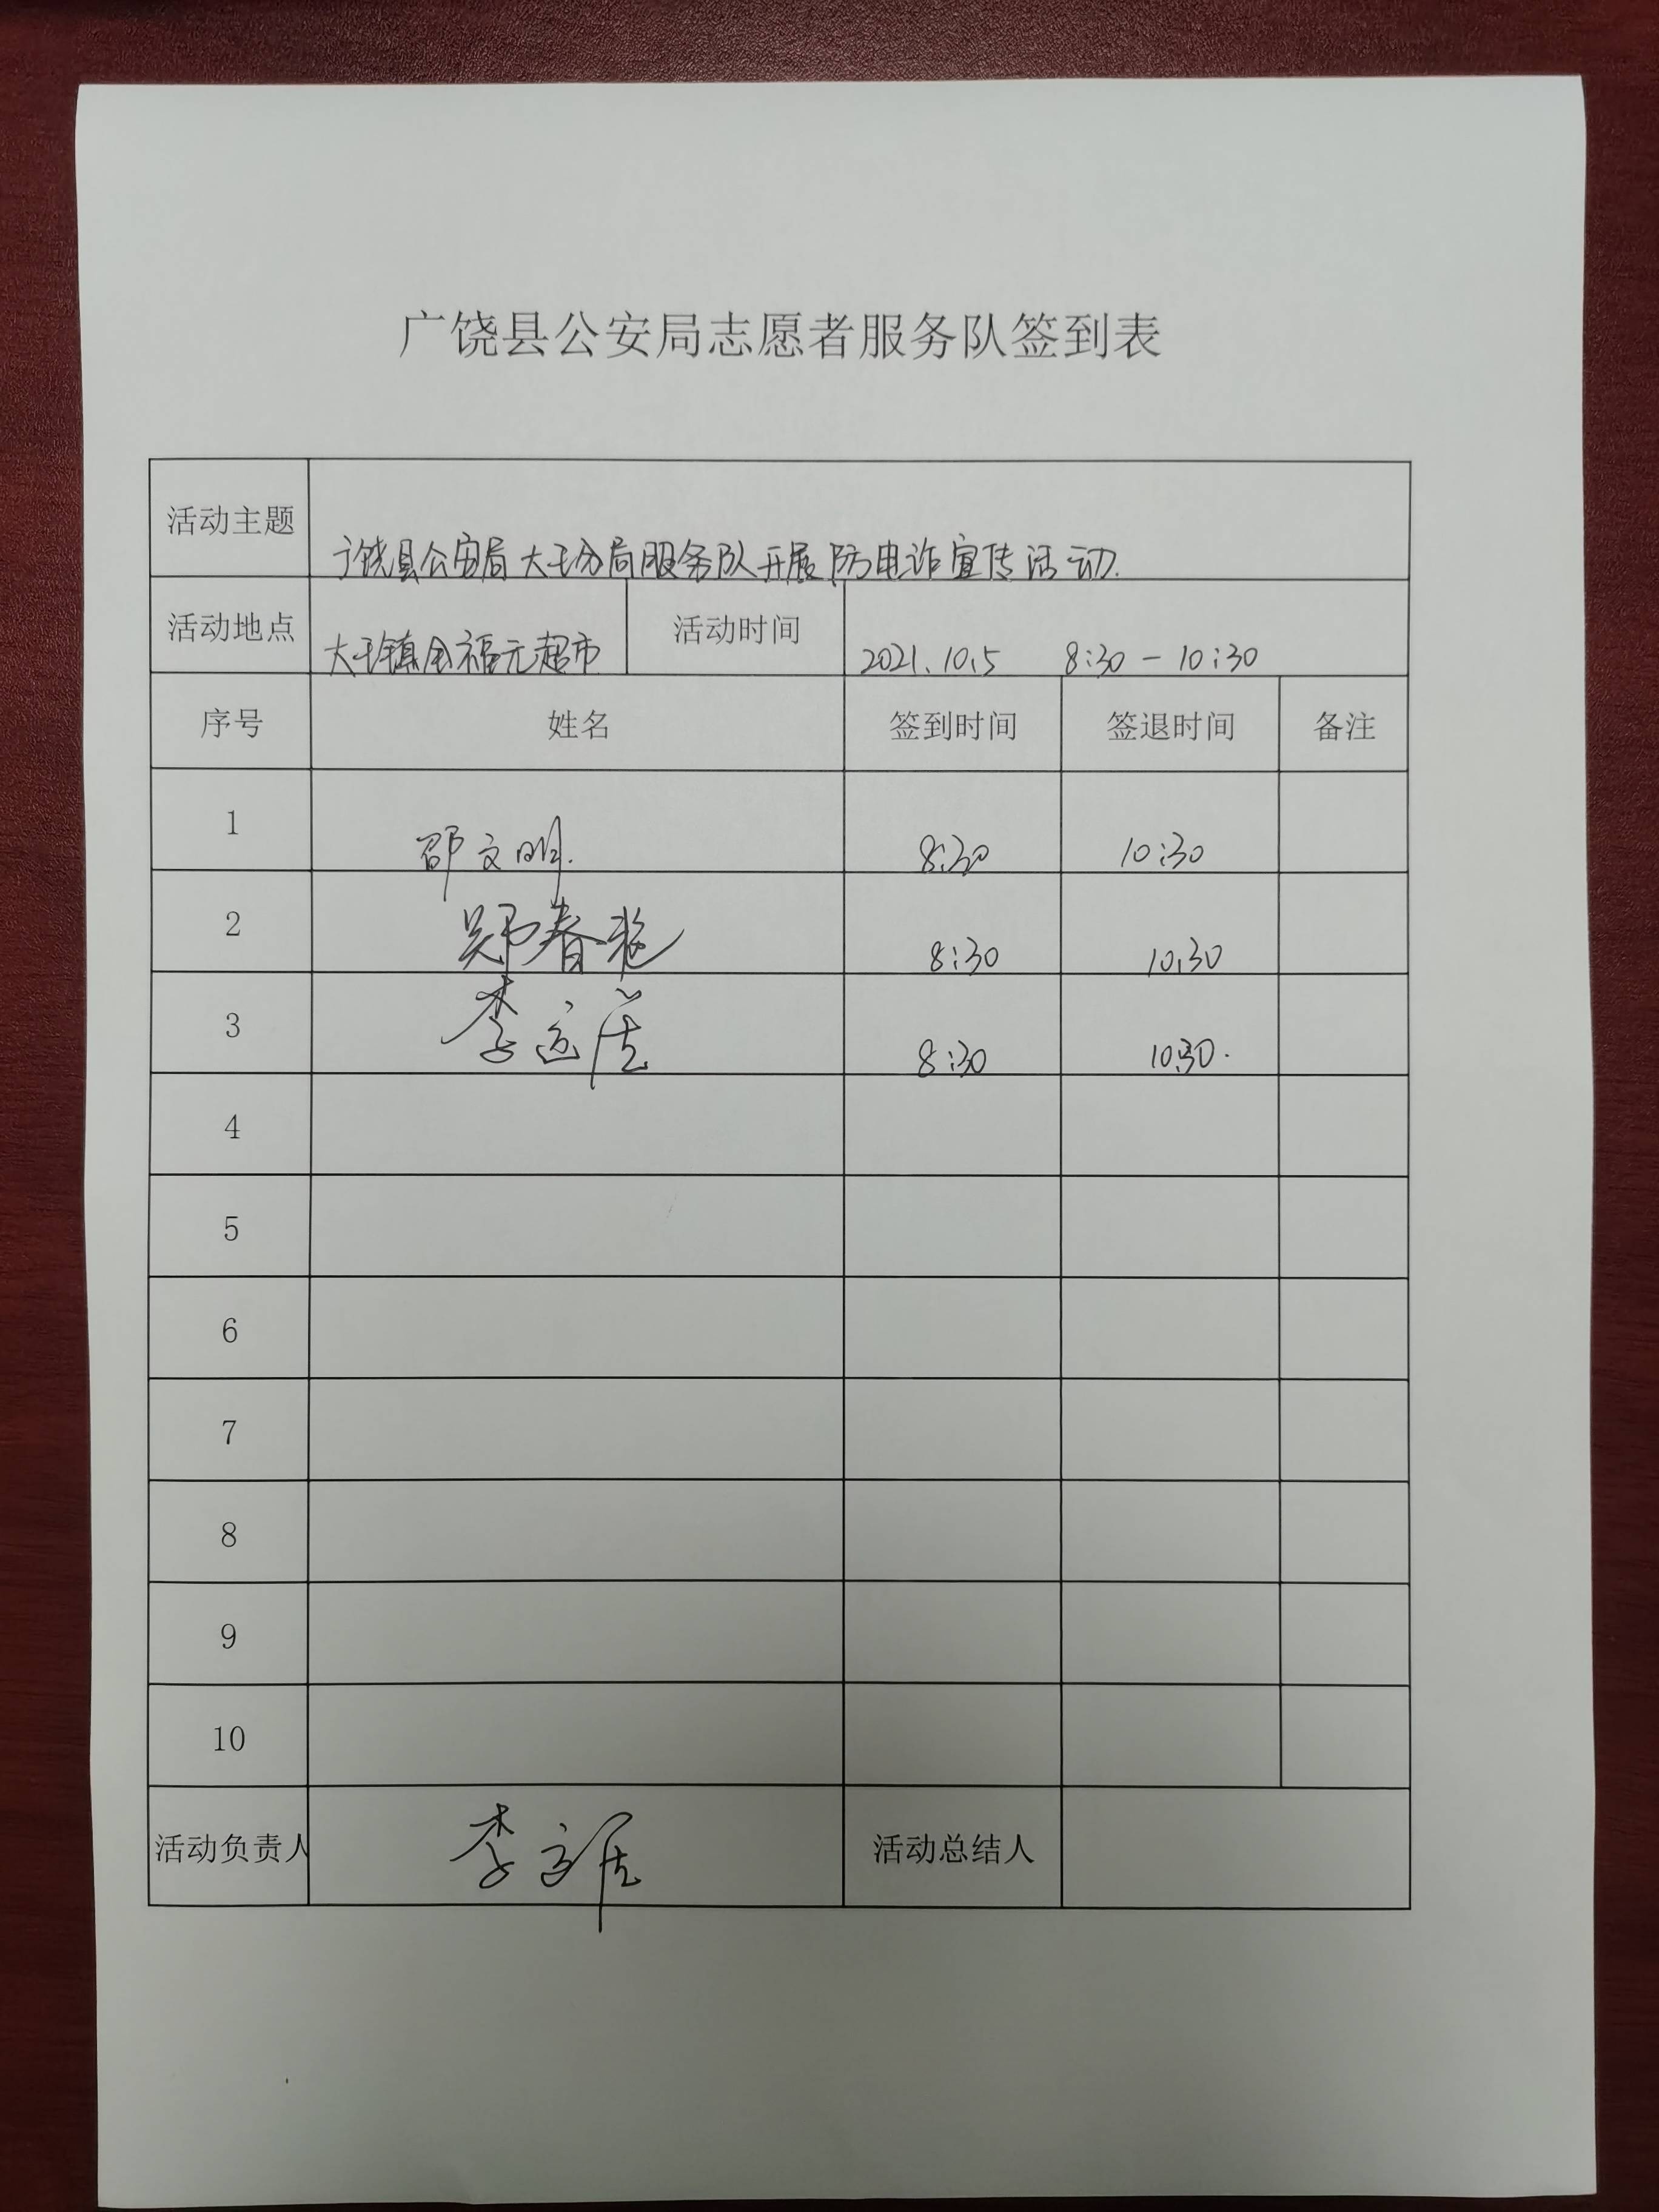 广饶县公安局志愿者服务队签到表
活动主题 广饶县公安局大王分局服务队开展防电诈宣传活动.
活动地点 大王镇全福元超市 活动时间 2021.10.5 8:30-10:30
序号 姓名 签到时间 签退时间 备注
1 邵文明. 8:30 10:30
2 郑春 8:30 10:30
3 李 8:30 10:30.
4
5
6
7
8
9
10
活动负责人 李 活动总结人